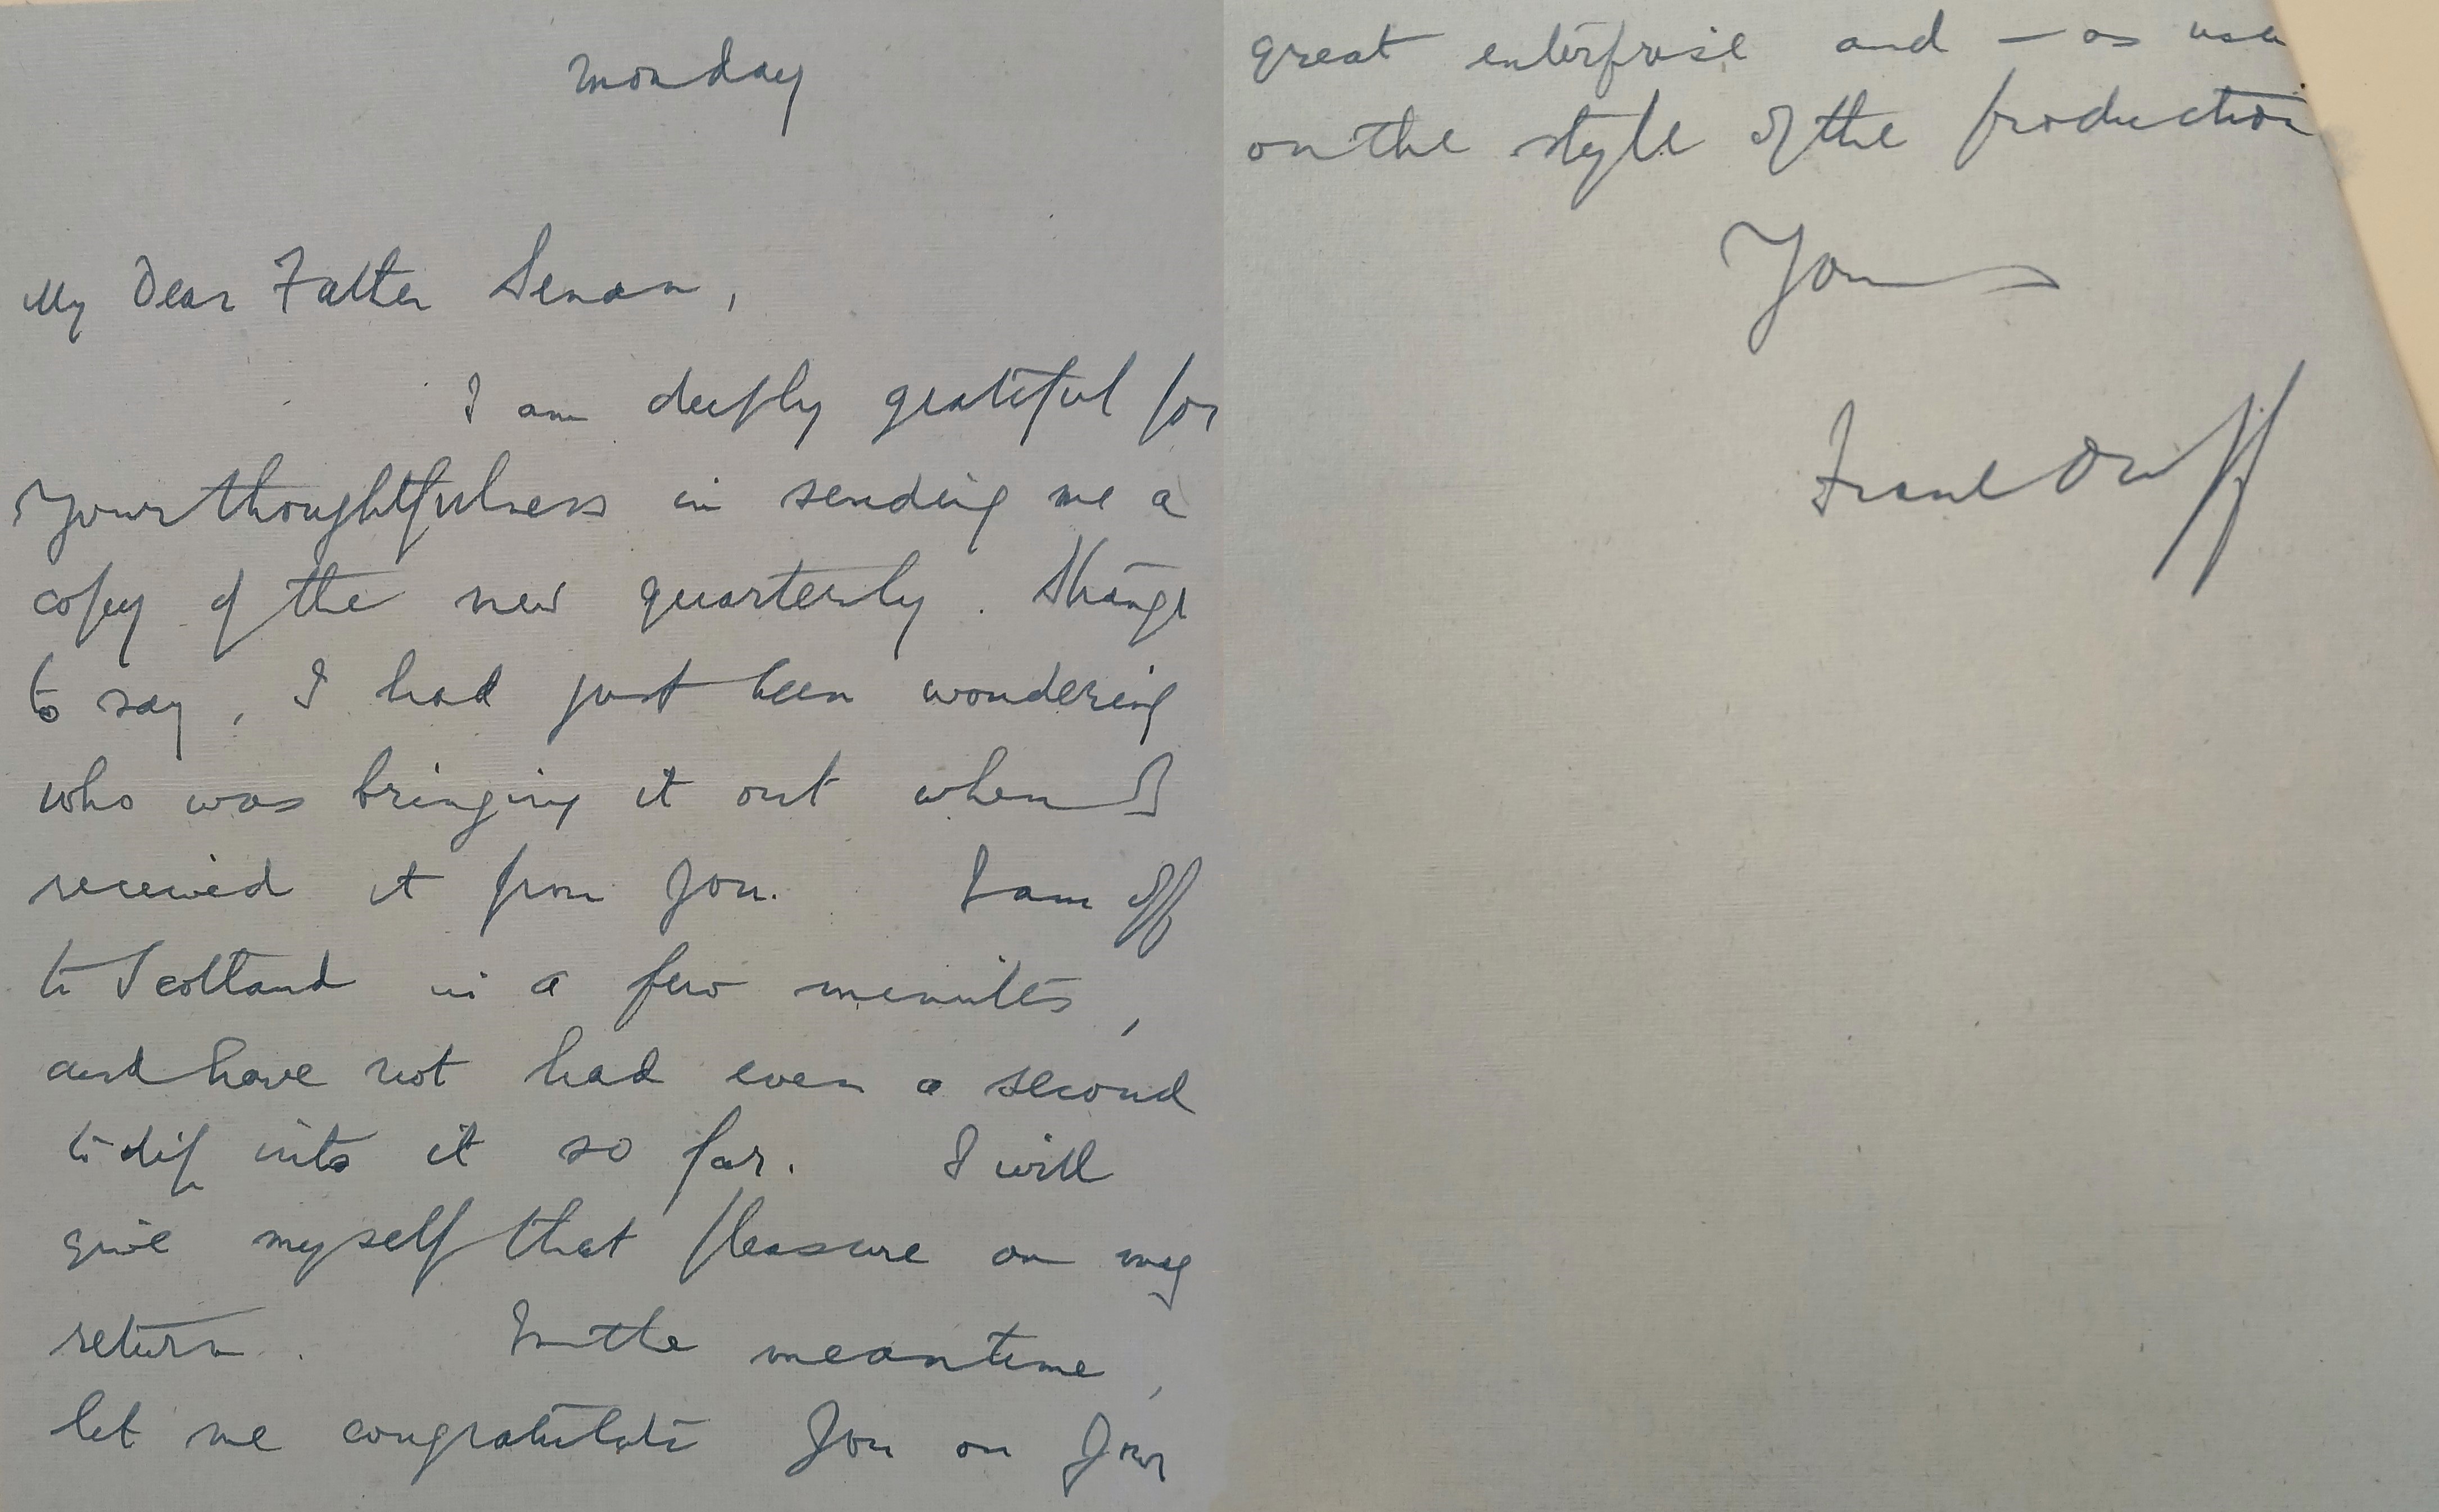 Monday
My Dear Father Senan,
I am deeply grateful for
your thoughtfulness in sending me a
copy of the new quarterly. Strange
to say, I had just been wondering
who was bringing it out when I
received it from you. I am off
to Scotland in a few minutes,
and have not had even a second
to dip into it so far. I will
give myself that pleasure on my
return. In the meantime,
let me congratulate you on your
great enterprise and – as usu
on the style of the production
Yours
Frank Duff